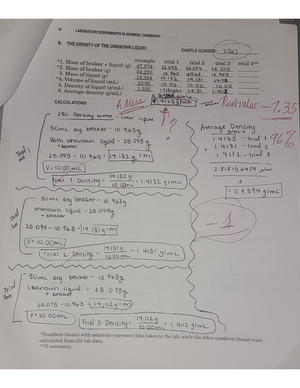 12 LABORATORY EXPERIMENTS IN GENERAL CHEMISTRY
B. THE DENSITY OF THE UNKNOWN LIQUID:
SAMPLE NUMBER:
example trial 1 trial 2 trial 3 trial 4**
*1. Mass of beaker + liquid (g) 47.574 25.095 25.094 25.075
*2. Mass of beaker (g) 34.220 10.963 10.963 10.963
3. Mass of liquid (g) 13.354 14.132 14.131 14.112
*4. Volume of liquid (mL) 10.00 10.00 10.00 10.00
5. Density of liquid (g/mL) 1.335
6. Average density (g/mL)
CALCULATIONS
Real value → 1.35
?
96%
- clear liquid
50mL dry beaker - 10.963g
With unknown liquid - 25.095
+ beaker
25.095 - 10.963 = 14.132 g = m
V = 10.00mL
Trial 1: Density = 14.132g / 10.00mL = 1.4132 g/mL
Average Density
1.4132 - trial 1
+ 1.4131 - trial 2
1.4112 - trial 3
3
-1
50mL dry beaker - 10.963g
unknown liquid - 25.094g
+ beaker
25.094 - 10.963 = 14.131g = m
V = 10.00mL
Trial 2: Density = 14.131g / 10.00mL = 1.4131 g/mL
50mL dry beaker - 10.963g
Unknown liquid = 25.075g
+ beaker
25.075 - 10.963 = 14.112g = m
V = 10.00mL
Trial 3: Density = 14.112g / 10.00mL = 1.4112 g/mL
*Numbers (items) with asterisks represent data taken in the lab, while the other numbers (items) were
calculated from the lab data.
**If necessary.